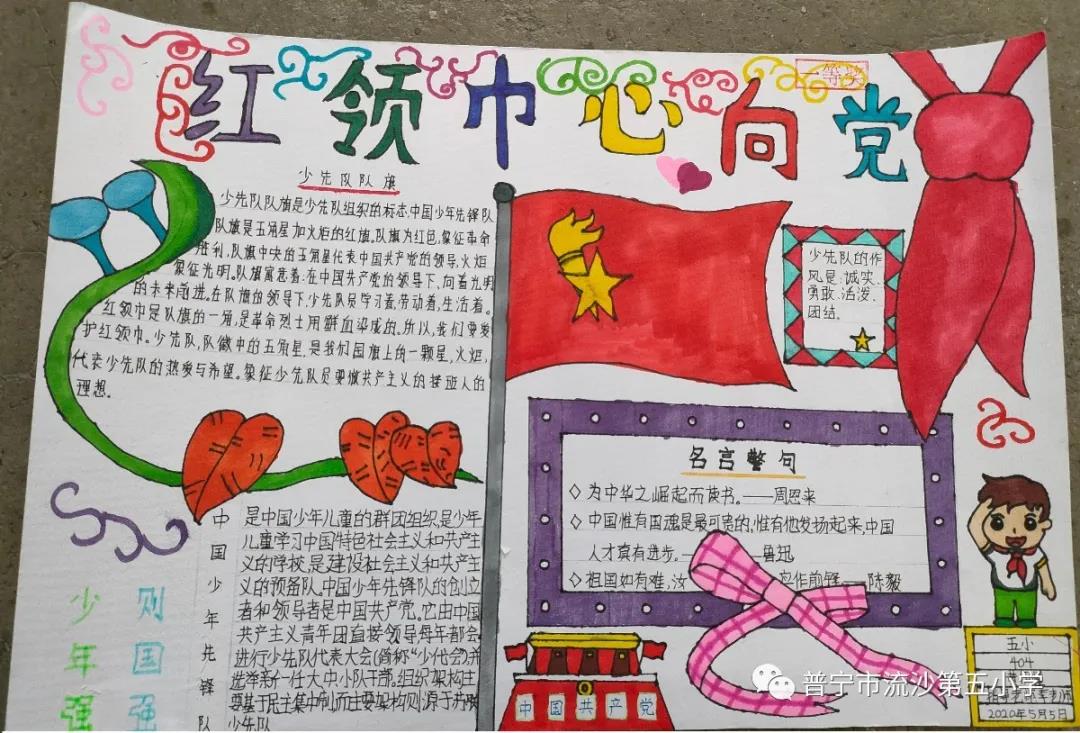 红领巾心向党
一等奖
少先队队旗
少先队队旗是少先队组织的标志.中国少年先锋队
队旗是五角星加火炬的红旗。队旗为红色,象征革命
胜利,队旗中央的五角星代表中国共产党的领导,火炬
象征光明。队旗寓意着:在中国共产党的领导下,向着光明
的未来前进。在队旗的领导下,少先队员学习着,劳动着,生活着。
红领巾是队旗的一角,是革命烈士用鲜血染成的。所以,我们要爱
护红领巾。少先队,队徽中的五角星,是我们国旗上的一颗星,火炬,
代表少先队的热爱与希望。象征少先队员要做共产主义的接班人的
理想。
少先队的作
风是:诚实、
勇敢、活泼、
团结。
名言警句
◇为中华之崛起而读书。——周恩来
◇中国惟有国魂是最可贵的,惟有他发扬起来,中国
人才真有进步。— 鲁迅
◇祖国如有难,汝 应作前锋——陈毅
中国少年先锋队
是中国少年儿童的群团组织,是少年
儿童学习中国特色社会主义和共产主
义的学校,是建设社会主义和共产主
义的预备队。中国少年先锋队的创立
者和领导者是中国共产党。它由中国
共产主义青年团直接领导每年都会
进行少先队代表大会(简称"少代会)并
选举新一任大中小队干部。组织架构主
要基于民主集中制,而主要架构则源于苏联
少先队
少年强
则国强
中国共产党
五小
404
2020年5月5日
普宁市流沙第五小学